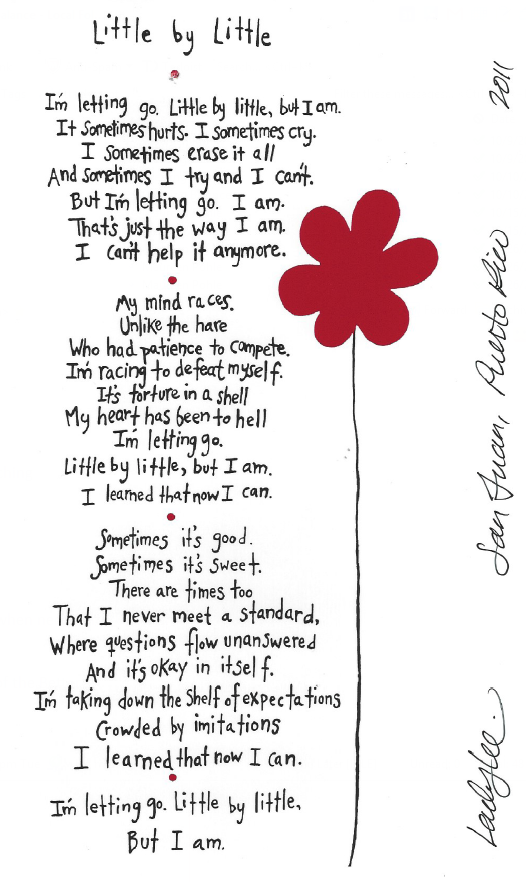 Little by Little
I'm letting go. Little by little, but I am.
It Sometimes hurts. I sometimes cry.
I sometimes erase it all
And sometimes I try and I can't.
But I'm letting go. I am.
That's just the way I am.
I can't help it anymore.
My mind races.
Unlike the hare
Who had patience to compete.
I'm racing to defeat myself.
It's torture in a shell
My heart has been to hell
I'm letting go.
Little by little, but I am.
I learned that now I can.
Sometimes it's good.
Sometimes it's sweet.
There are times too
That I never meet a standard,
Where questions flow unanswered
And it's okay in itself.
I'm taking down the shelf of expectations
Crowded by imitations
I learned that now I can.
I'm letting go. Little by little,
But I am.
Ladyslee. San Juan, Puerto Rico 2011